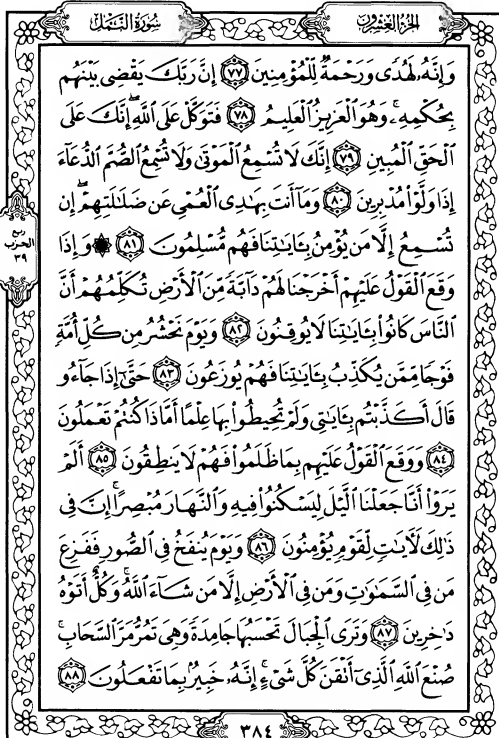 الجُزْءُ العِشْرُونَ
سُورَةُ النَّمْلِ
وَإِنَّهُۥ لَهُدًى وَرَحْمَةٌ لِّلْمُؤْمِنِينَ ٧٧ إِنَّ رَبَّكَ يَقْضِى بَيْنَهُم
بِحُكْمِهِۦۚ وَهُوَ ٱلْعَزِيزُ ٱلْعَلِيمُ ٧٨ فَتَوَكَّلْ عَلَى ٱللَّهِۖ إِنَّكَ عَلَى
ٱلْحَقِّ ٱلْمُبِينِ ٧٩ إِنَّكَ لَا تُسْمِعُ ٱلْمَوْتَىٰ وَلَا تُسْمِعُ ٱلصُّمَّ ٱلدُّعَآءَ
إِذَا وَلَّوْا۟ مُدْبِرِينَ ٨٠ وَمَآ أَنتَ بِهَـٰدِى ٱلْعُمْىِ عَن ضَلَـٰلَتِهِمْۖ إِن
تُسْمِعُ إِلَّا مَن يُؤْمِنُ بِـَٔايَـٰتِنَا فَهُم مُّسْلِمُونَ ٨١ ۞ وَإِذَا
وَقَعَ ٱلْقَوْلُ عَلَيْهِمْ أَخْرَجْنَا لَهُمْ دَآبَّةً مِّنَ ٱلْأَرْضِ تُكَلِّمُهُمْ أَنَّ
ٱلنَّاسَ كَانُوا۟ بِـَٔايَـٰتِنَا لَا يُوقِنُونَ ٨٢ وَيَوْمَ نَحْشُرُ مِن كُلِّ أُمَّةٍ
فَوْجًا مِّمَّن يُكَذِّبُ بِـَٔايَـٰتِنَا فَهُمْ يُوزَعُونَ ٨٣ حَتَّىٰٓ إِذَا جَآءُو
قَالَ أَكَذَّبْتُم بِـَٔايَـٰتِى وَلَمْ تُحِيطُوا۟ بِهَا عِلْمًا أَمَّاذَا كُنتُمْ تَعْمَلُونَ
٨٤ وَوَقَعَ ٱلْقَوْلُ عَلَيْهِم بِمَا ظَلَمُوا۟ فَهُمْ لَا يَنطِقُونَ ٨٥ أَلَمْ
يَرَوْا۟ أَنَّا جَعَلْنَا ٱلَّيْلَ لِيَسْكُنُوا۟ فِيهِ وَٱلنَّهَارَ مُبْصِرًاۚ إِنَّ فِى
ذَٰلِكَ لَـَٔايَـٰتٍ لِّقَوْمٍ يُؤْمِنُونَ ٨٦ وَيَوْمَ يُنفَخُ فِى ٱلصُّورِ فَفَزِعَ
مَن فِى ٱلسَّمَـٰوَٰتِ وَمَن فِى ٱلْأَرْضِ إِلَّا مَن شَآءَ ٱللَّهُۚ وَكُلٌّ أَتَوْهُ
دَٰخِرِينَ ٨٧ وَتَرَى ٱلْجِبَالَ تَحْسَبُهَا جَامِدَةً وَهِىَ تَمُرُّ مَرَّ ٱلسَّحَابِۚ
صُنْعَ ٱللَّهِ ٱلَّذِىٓ أَتْقَنَ كُلَّ شَىْءٍۚ إِنَّهُۥ خَبِيرٌۢ بِمَا تَفْعَلُونَ ٨٨
ربع
الحزب
٣٩
٣٨٤